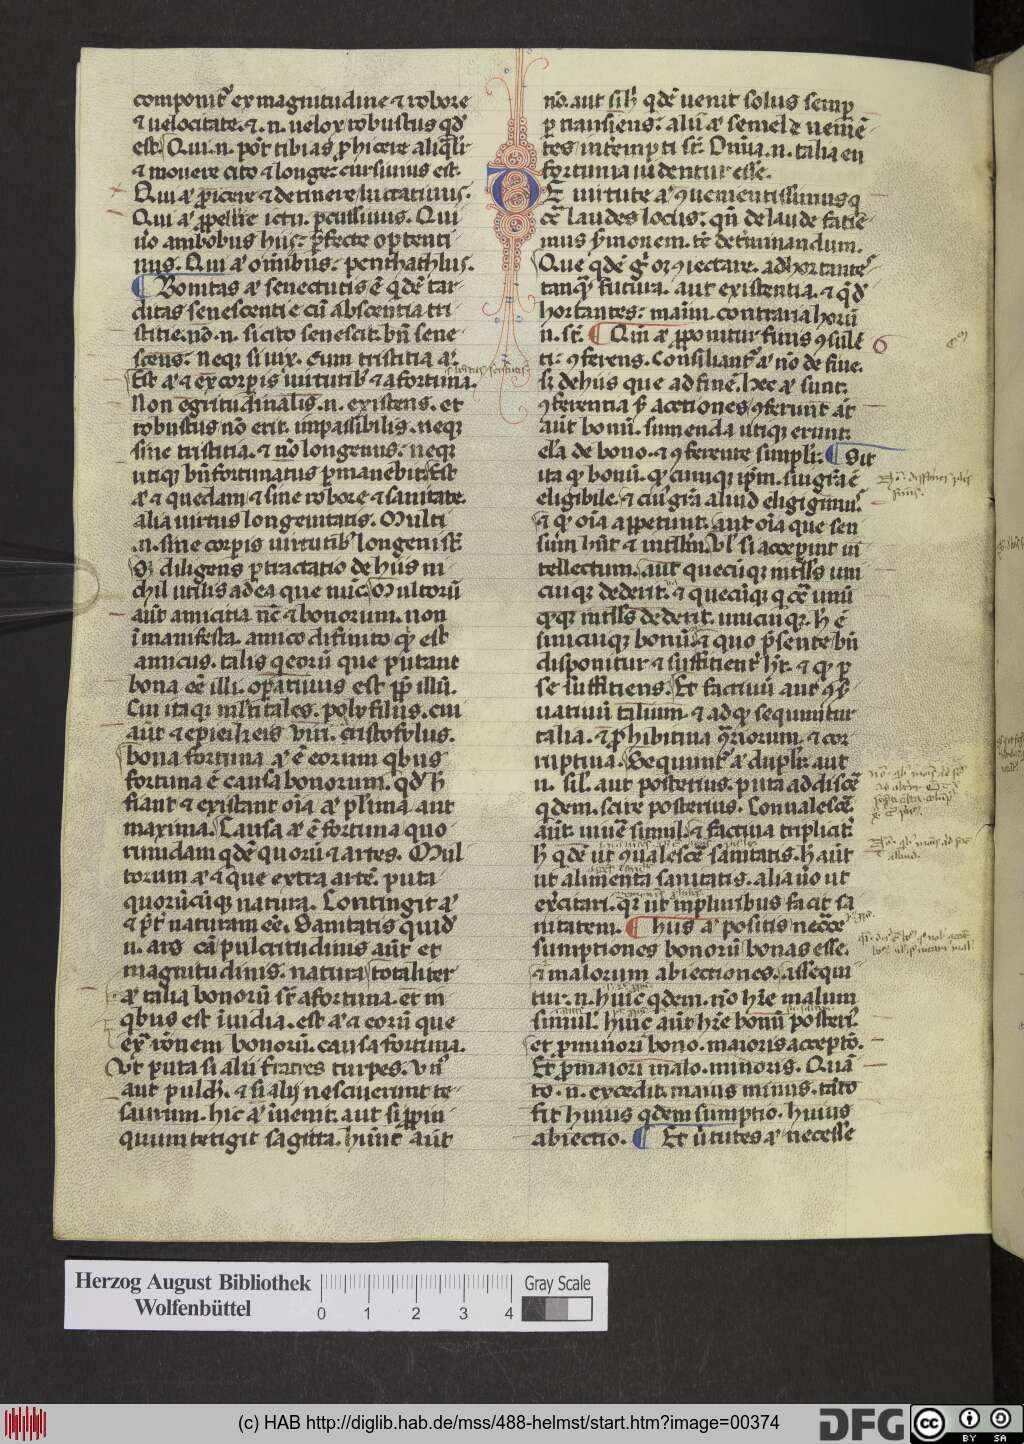 componit᷑ ex magnitudine ⁊ robore
⁊ uelocitate. ⁊ .n. uelox robustus q̄d̄
est. Qui .n. pot̄ tibias ꝓhicere aliq̄lr̄
⁊ mouere cito ⁊ longe: cursiuus est.
Qui aͭ p̄icere ⁊ detinere luctatiuus.
Qui aͭ ꝓpellere ictu. ꝑcussiuus. Qui
u̾o ambobus hiis: ꝑfecte optenti
uus. Qui aͭ om̄ibus: penthathlus.
¶ Bonitas aͭ senectutis ē q̄dē tar-
ditas senescentie cū absencia tri
stitie. nō .n. si cito senescit. bn̄ sene
scens: neq; si uix. cum tristitia aͭ.
Est aͭ ⁊ ex corꝑis uirtutib᷒ ⁊ a fortuna.
Non egritudinalis .n. existens. et
robustus nō erit. impassibilis. neq;
sine tristitia. ⁊ nō longeuus: neq;
utiq; bn̄ fortunatus ꝑmanebit. Est
aͭ ⁊ quedam ⁊ sine robore ⁊ sanitate.
alia uirtus longeuitatis. Multi
.n. sine corꝑis uirtutib᷒ longeui st̄.
S; diligens ꝑtractatio de hiis ni-
chil utilis ad ea que nūc. Multorū
aūt amicitia nc̄ ⁊ bonorum. non
īmanifesta. amico difinito q̄ est
amicus. talis q̇ eorū que putant
bona eē illi. oꝑatiuus est ꝓp̄ illū.
Cui itaq; ml̄ti tales. polyfilus. cui
aūt ⁊ epieikeis uiri. cristofylus.
bona fortuna aͭ ē eorum q̇bus
fortuna ē causa bonorum. q̄d̄ h̄
fiant ⁊ existant oīa aͭ pl̄ima aut
maxima. Causa aͭ ē fortuna quo
rundam q̄dē quorū ⁊ artes. Mul
torum aͭ ⁊ que extra artē. puta
quorūcūq; natura. Contingit aͭ
⁊ p̄t̄ naturam eē. Sanitatis quid̄
.n. ars cā pulcritudinis aūt et
magnitudinis. natura totaliter
aͭ talia bonorū st̄ a fortuna. et in
q̇bus est īuidia. est aͭ ⁊ eorū que
ex̄ rōnem bonorū. causa fortuna.
Ut puta si alii fratres turpes. un̄
aut pulch̄. ⁊ si alij nesciuerunt te-
saurum. hic aͭ īuenit. aut si ꝓpin-
quum tetigit sagitta. hūnc̄ aūt
nō. aut si h̄ q̄dē uenit solus semꝑ
ꝑ transiens: alii aͭ semel e ueniē-
tes intempti st̄. Om̄ia .n. talia eu
fortunia uidentur esse.
DE uirtute aͭ ꝯuenientissimus q̇
cē laudes locus: qn̄ de laude facie
mus s̄monem. tc̄ det̄minandum.
Que q̄dē gͥ oꝫ ꝯiectare. adhortantē
tanq̄ futura. aut existentia. ⁊ q̄d̄
hortantes: maīm. contraria horū
.n. st̄. ¶ Qm̄ aͭ ꝓponitur finis ꝯsulē
ti: ꝯferens. Consiliant᷑ aͭ nō de fine.
s; de hiis que ad finē. hec aͭ sunt.
ꝯferentia s̄ actiones ꝯferunt āt
aūt bonū. sumenda utiq; erunt.
ela de bono. ⁊ ꝯferente simplr̄. ¶ Sit
ita q̄ bonū. q̄cumq; ip̄m. sui grā ē
eligibile. ⁊ cui grā aliud eligimus.
⁊ q̄ oīa appetunt. aut oīa que sen
sum hn̄t ⁊ intll̄m. ul̄ si acceperint in
tellectum. aut quecūq; intll̄s uni
cuiq; dederit. ⁊ quecūq; q̇ cē unū
q̄q; intll̄s dederit. unicuiq;. h̄ ē
unicuiq; bonū ⁊ quo p̄sente bn̄
disponitur ⁊ sufficient᷑ h̄t. ⁊ q̄ ꝑ
se sufficiens. Et factiuū aut ꝯs̄
uatiuū talium. ⁊ ad q̄ sequuntur
talia. ⁊ ꝓhibitiua ꝯr̄iorum. ⁊ cor
ruptiua. Sequunt᷑ aͭ duplr̄. aut
.n. sil̄. aut posterius. puta addiscē
q̄dem. scire posterius. Conualescē
aūt. uiuē simul. ⁊ factiua triplicit᷑
h̄ q̄dē ut ꝯualescē sanitatis. h̄ aūt
ut alimenta sanitatis. alia u̾o ut
exercitari. qr̄ ut inpluribus facit sa
nitatem. ¶ hiis aͭ positis neccē
sumptiones bonorū bonas esse.
⁊ malorum abiectiones. assequi
tur .n. huic q̄dem. nō hr̄e malum
simul. huic aūt hr̄e bonū posteri᷒.
et ꝓminori bono. maioris acceptō.
Et ꝓmaiori malo. minoris. Quā
to .n. excedit. maius minus. tāto
fit huius q̄dem sumptio. huius
abiectio. ¶ Et u̾tutes aͭ necesse
6
Herzog August Bibliothek
Wolfenbüttel
0 1 2 3 4
Gray Scale
(c) HAB http://diglib.hab.de/mss/488-helmst/start.htm?image=00374
DFG
cc
BY SA